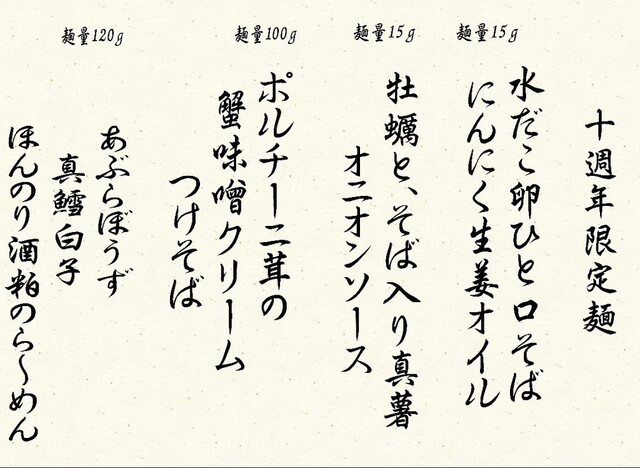 十週年限定麺
麺量15g
水だこ卵ひと口そば
にんにく生姜オイル
麺量15g
牡蠣と、そば入り真薯
オニオンソース
麺量100g
ポルチーニ茸の
蟹味噌クリーム
つけそば
麺量120g
あぶらぼうず
真鱈白子
ほんのり酒粕のら〜めん